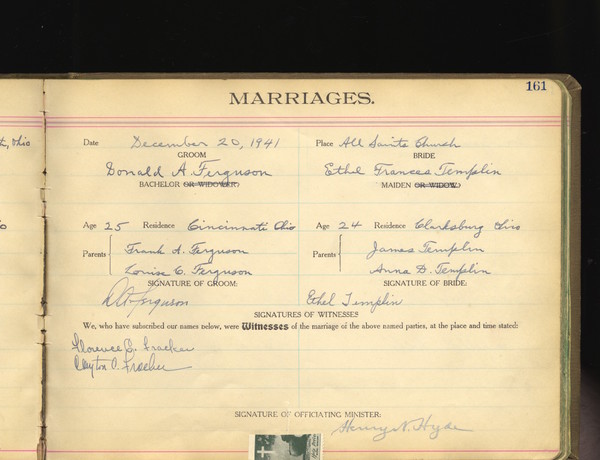 161
MARRIAGES.
Ohio
Date December 20, 1941 Place All Saints Church
GROOM BRIDE
Donald A. Ferguson Ethel Frances Templin
BACHELOR OR WIDOWER) MAIDEN OR WIDOW)
Age 25 Residence Cincinnati Ohio Age 24 Residence Clarksburg Ohio
Parents Frank A. Ferguson Parents James Templin
Louise C. Ferguson Anna D. Templin
SIGNATURE OF GROOM: SIGNATURE OF BRIDE:
D A Ferguson Ethel Templin
SIGNATURES OF WITNESSES
We, who have subscribed our names below, were Witnesses of the marriage of the above named parties, at the place and time stated:
Florence
Clayton O.
SIGNATURE OF OFFICIATING MINISTER:
Henry N. Hyde